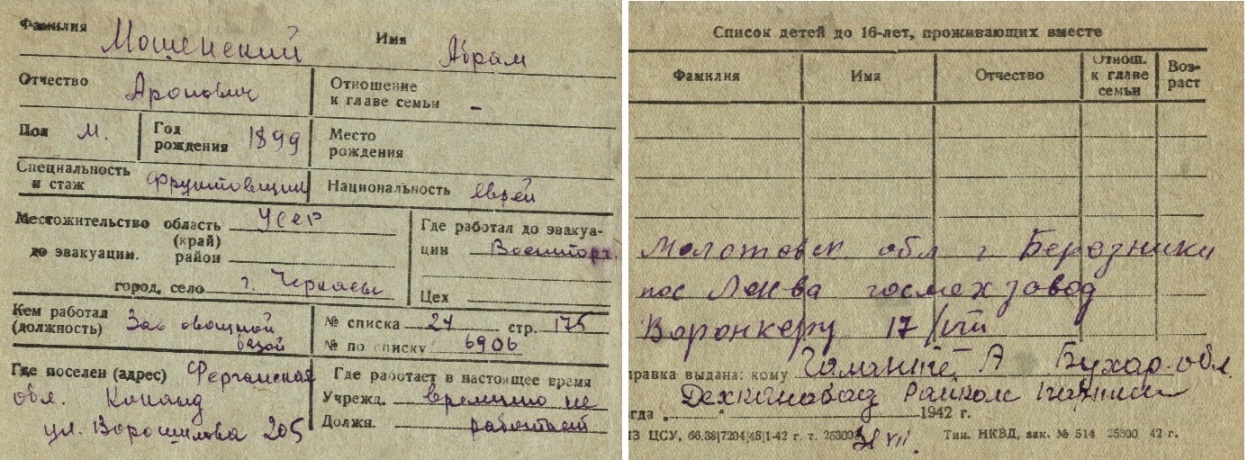 Фамилия Мошенский Имя Абрам
Отчество Аронович Отношение к главе семьи -
Пол М. Год рождения 1899 Место рождения
Специальность и стаж Фруктовщик Национальность еврей
Местожительство до эвакуации. область (край) УССР
район
город, село г. Черкассы
Где работал до эвакуации Военторг.
Цех
Кем работал (должность) Зав овощной базой
№ списка 24 стр. 175
№ по списку 6906
Где поселен (адрес) Ферганская
обл. Коканд
ул. Ворошилова 205
Где работает в настоящее время
Учрежд. временно не
Должн. работает
Список детей до 16-лет, проживающих вместе
Фамилия Имя Отчество Отнош. к главе семьи Возраст
Молотовск. обл г Березники
пос Ленва госмехзавод
Воронкеру 17/VIII
правка выдана: кому А Бухар. обл.
Дехканабад Райком
гда 1942 г.
ИЗ ЦСУ, 66,38|7204|48|1-42 г. т. 25300 Тип. НКВД, зак. № 514 25300 42 г.